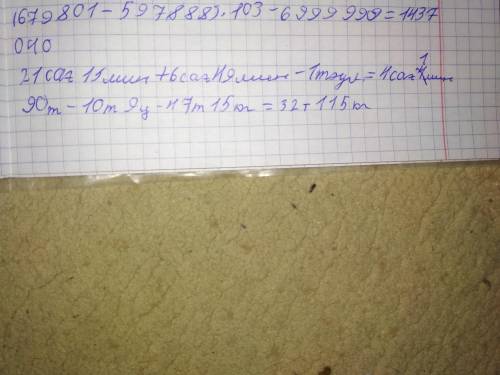 (679801-597888)·103-6999999=1437
040
21 сағ 15 мин + 6 сағ 49 мин - 1 тәул = 4 сағ 4 мин
90т - 10т 9ц - 47т 15кг = 32т 115кг